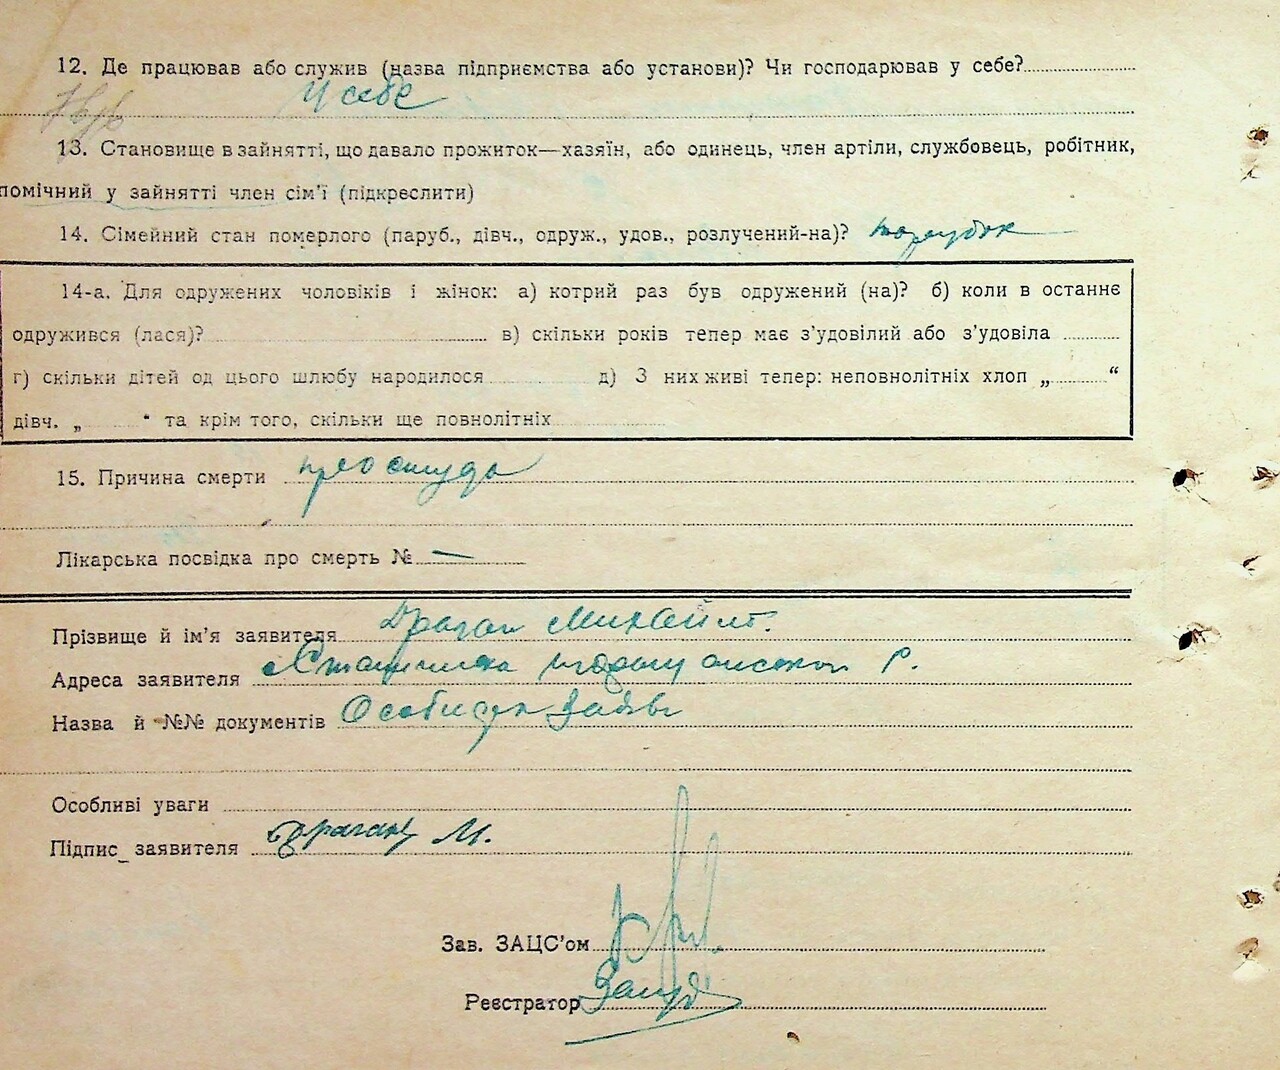 12. Де працював або служив (назва підприємства або установи)? Чи господарював у себе?
У себе
13. Становище в зайнятті, що давало прожиток—хазяїн, або одинець, член артіли, службовець, робітник,
помічний у зайнятті член сім'ї (підкреслити)
14. Сімейний стан померлого (паруб., дівч., одруж., удов., розлучений-на)? парубок
14-а. Для одружених чоловіків і жінок: а) котрий раз був одружений (на)? б) коли в останнє
одружився (лася)? в) скільки років тепер має з'удовілий або з'удовіла
г) скільки дітей од цього шлюбу народилося д) З них живі тепер: неповнолітніх хлоп „ “
дівч. „ “ та крім того, скільки ще повнолітніх
15. Причина смерти простуда
Лікарська посвідка про смерть № —
Прізвище й ім'я заявителя Драган Михайло
Адреса заявителя Р.
Назва й №№ документів Особиста Заява
Особливі уваги
Підпис заявителя Драган М.
Зав. ЗАЦС'ом
Реєстратор